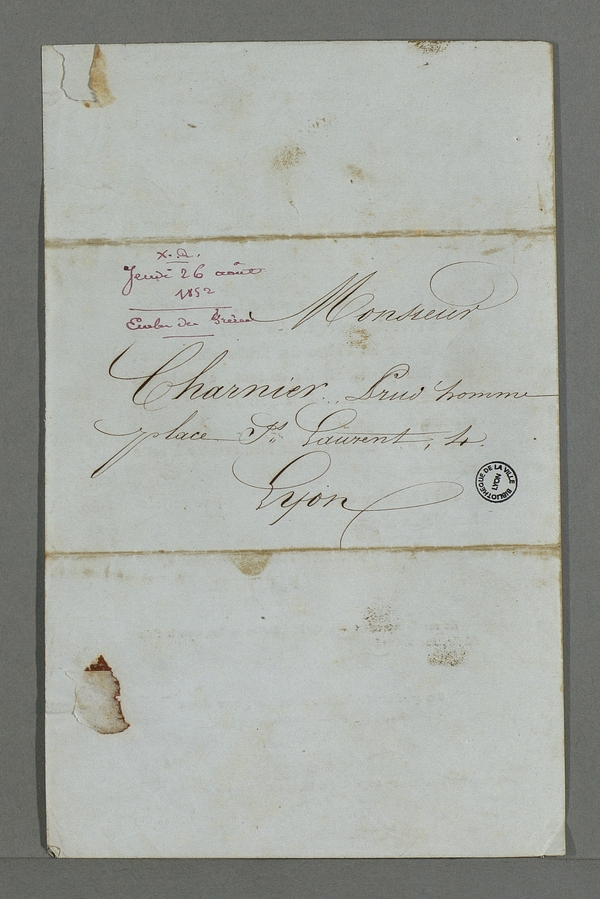 x. Q.
Jeudi 26 août
1852
Ecoles des Frères
Monsieur
Charnier Prud'homme
place St. Laurent, 4.
Lyon
BIBLIOTHÈQUE DE LA VILLE
LYON